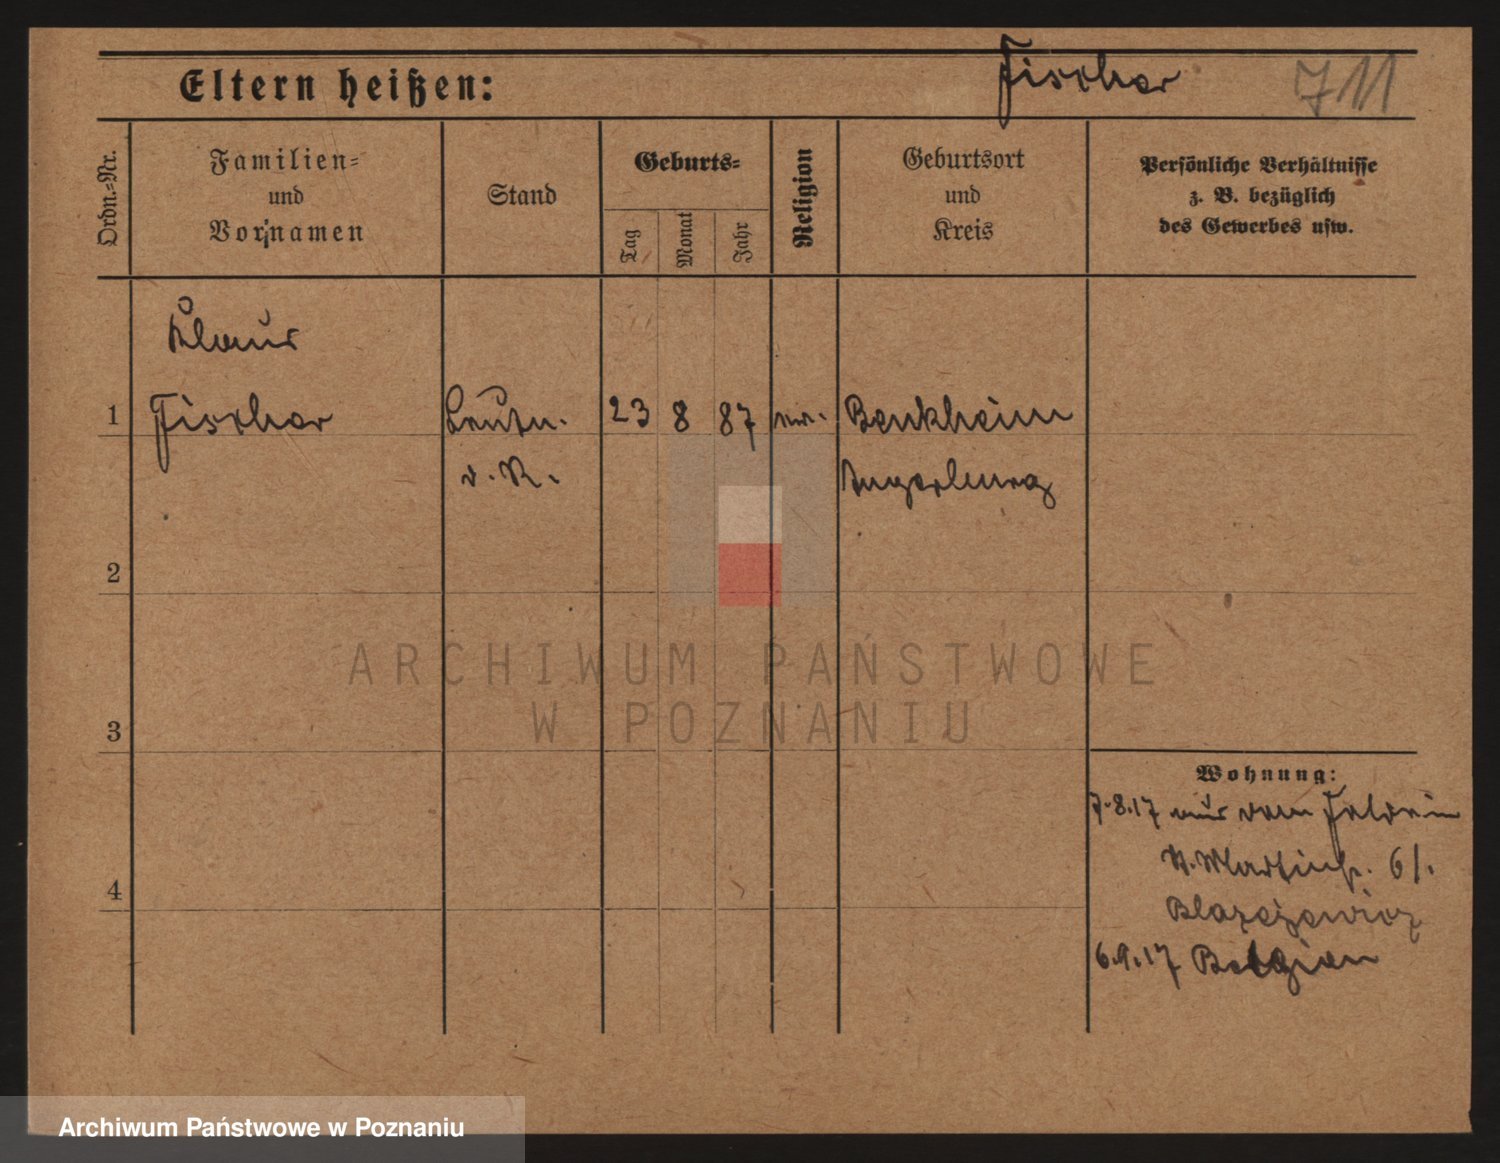 Eltern heißen: Fischer 711
Ordn.=Nr.
Familien=
und
Vornamen
Stand
Geburts=
Tag
Monat
Jahr
Religion
Geburtsort
und
Kreis
Persönliche Verhältnisse
z. B. bezüglich
des Gewerbes usw.
Klaus
1 Fischer Leutn. 23 8 87 Benkheim
d. R. Angerburg
2
3
4
Wohnung:
7.8.17 aus dem Felde in
St. Martinstr. 61.
Blazejewicz
6.9.17 Belgien
ARCHIWUM PAŃSTWOWE
W POZNANIU
Archiwum Państwowe w Poznaniu